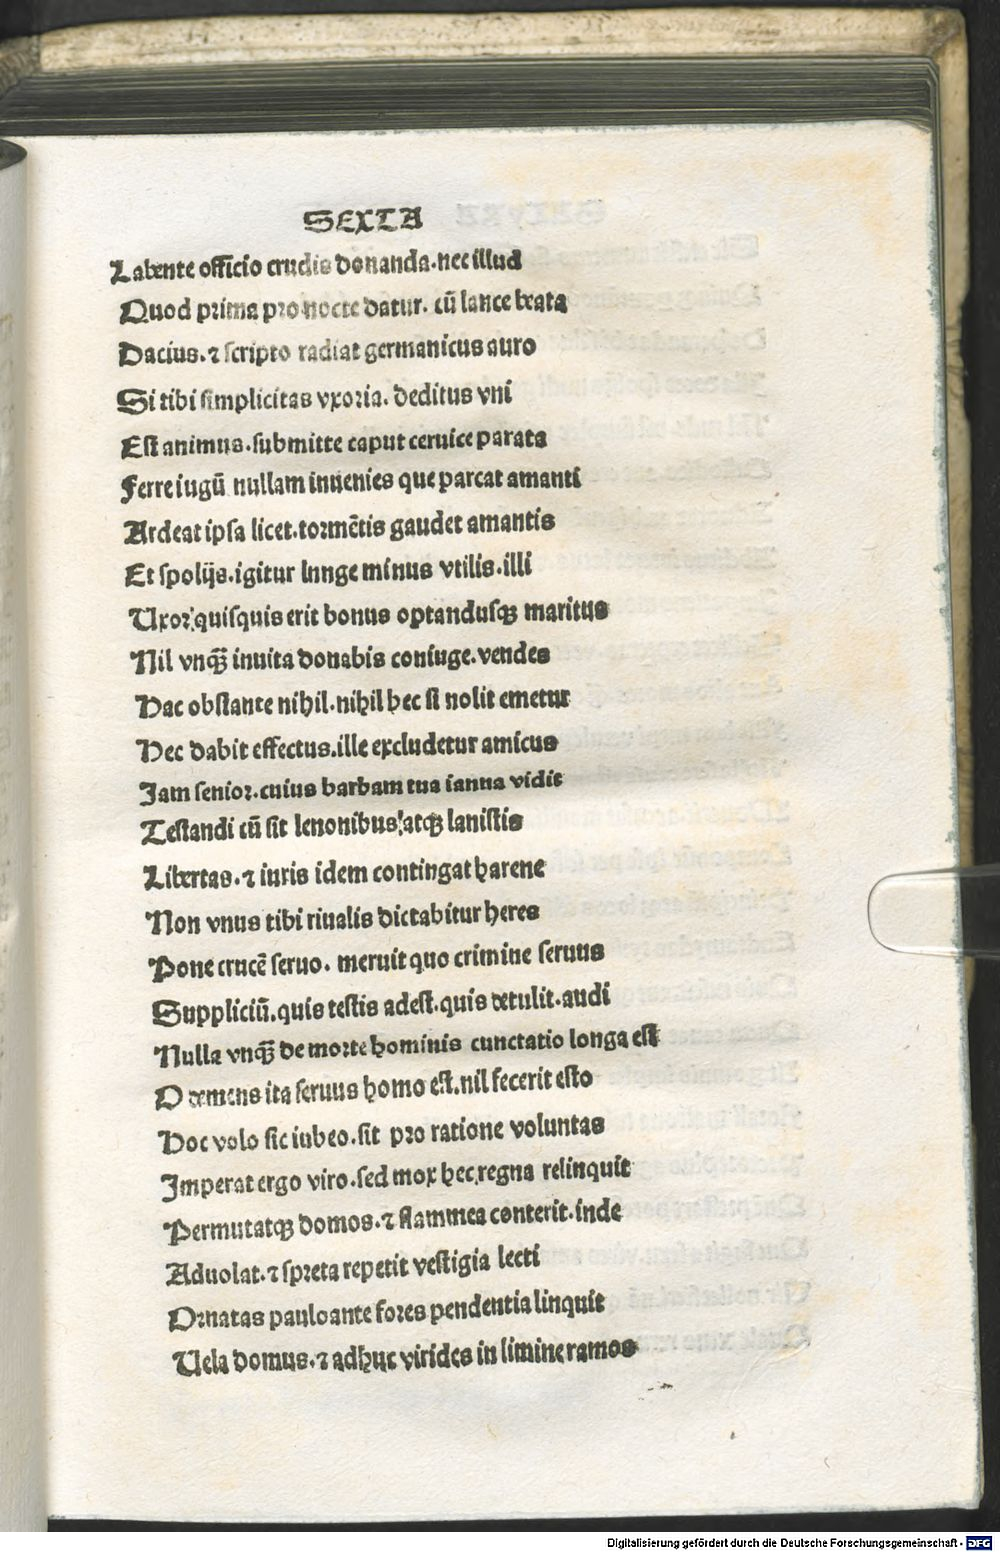 SEXTA
Labente officio crudis donanda. nec illud
Quod prima pro nocte datur. cū lance beata
Dacius. ⁊ scripto radiat germanicus auro
Si tibi simplicitas vxoria. deditus vni
Est animus. submitte caput ceruice parata
Ferre iugū nullam inuenies que parcat amanti
Ardeat ipsa licet. tormētis gaudet amantis
Et spolijs. igitur lnnge minus vtilis. illi
Uxor: quisquis erit bonus optandusqꝫ maritus
Nil vnqꝫ̄ inuita donabis coniuge. vendes
Hac obstante nihil. nihil hec si nolit emetur
Hec dabit effectus. ille excludetur amicus
Jam senior. cuius barbam tua ianua vidit
Testandi cū sit lenonibus: atqꝫ lanistis
Libertas. ⁊ iuris idem contingat harene
Non vnus tibi riualis dictabitur heres
Pone crucē seruo. meruit quo crimine seruus
Suppliciū. quis testis adest. quis detulit. audi
Nulla vnqꝫ̄ de morte hominis cunctatio longa est
O demens ita seruus homo est. nil fecerit esto
Hoc volo sic iubeo. sit pro ratione voluntas
Imperat ergo viro. sed mox hec regna relinquit
Permutatqꝫ domos. ⁊ flammea conterit. inde
Aduolat. ⁊ spreta repetit vestigia lecti
Ornatas pauloante fores pendentia linquit
Uela domus. ⁊ adhuc virides in limine ramos
Digitalisierung gefördert durch die Deutsche Forschungsgemeinschaft - DFG